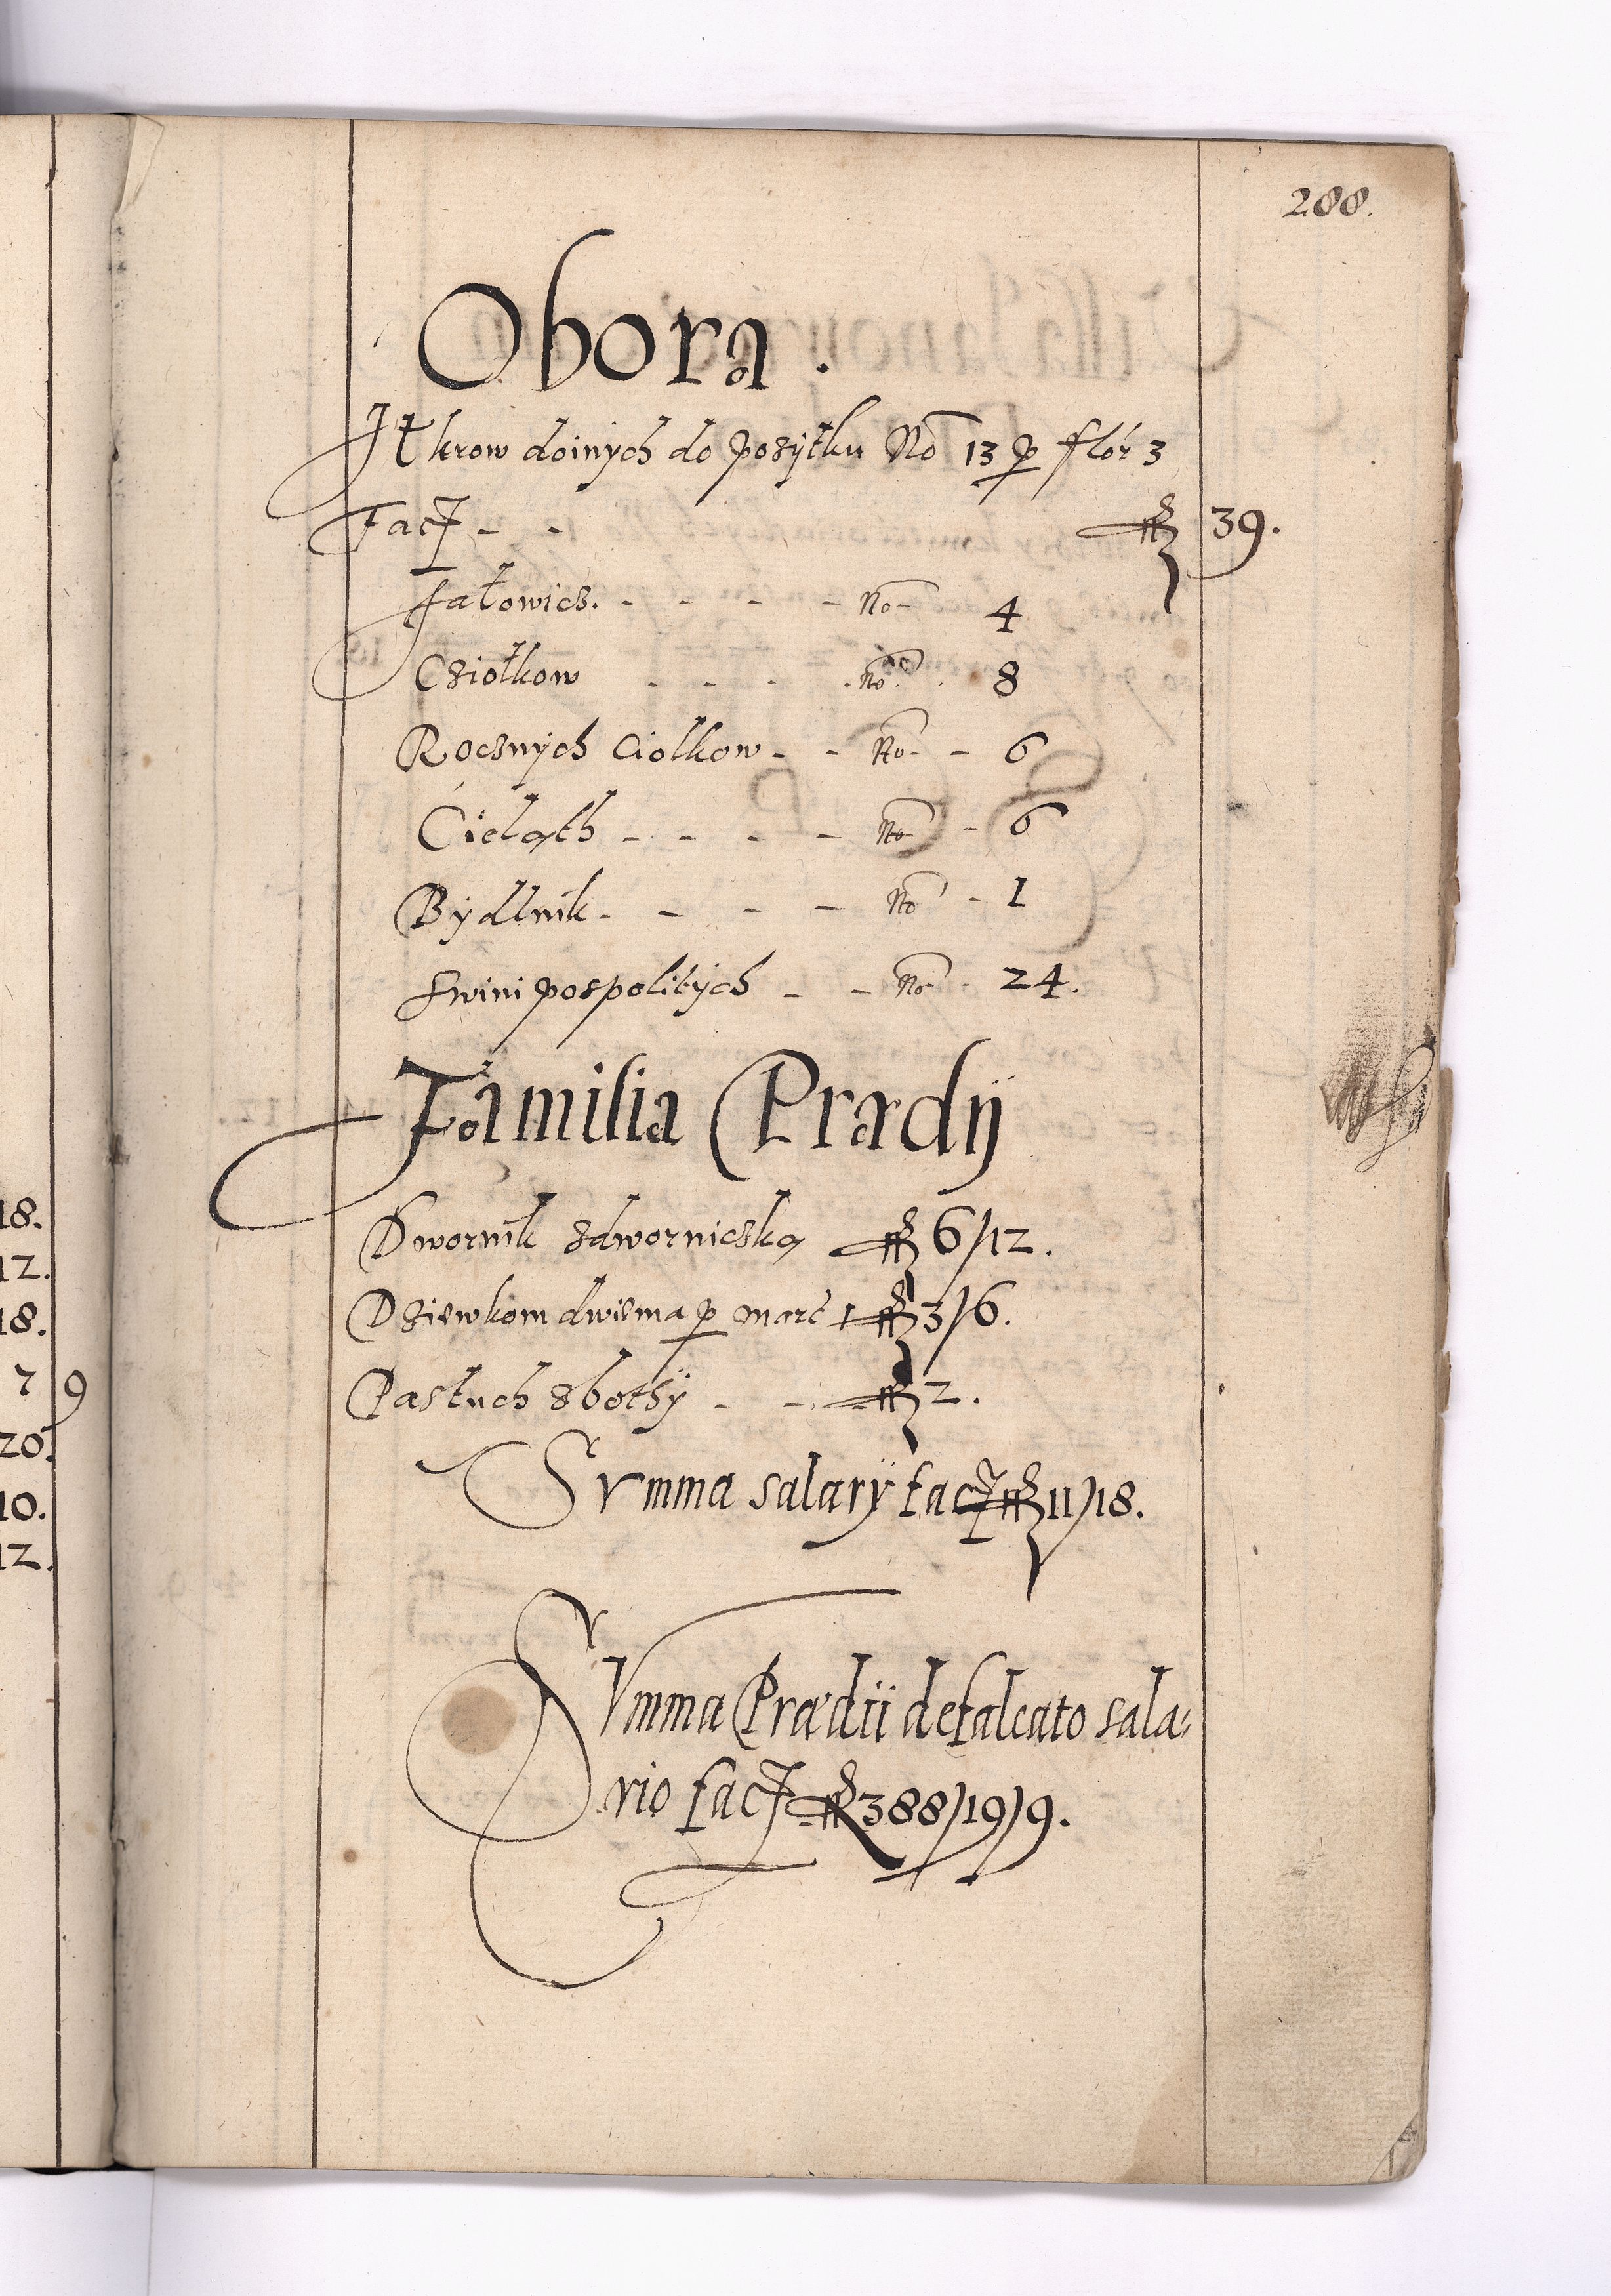 288.
Obora.
It krow doinych do pozytku No 13 p flor 3
Fact - - ff 39.
Jałowicz. - - - - No 4
Cziołkow - - - No 8
Rocznych Ciołkow - - No - 6
Cieląth - - - - No - 6
Bydlnik - - - - No - 1
Swini pospolitych - - No - 24.
Familia Prædij
Dwornik zdworniczką ff 6/12.
Dziewkom dwiema p marc 1 ff 3/6.
Pastuch zbothy - - ff 2.
Summa salarij fact ff 11/18.
Summa Prædii defalcato sala-
rio fact ff 388/19/9.
18.
12.
18.
7 9
20.
10.
12.